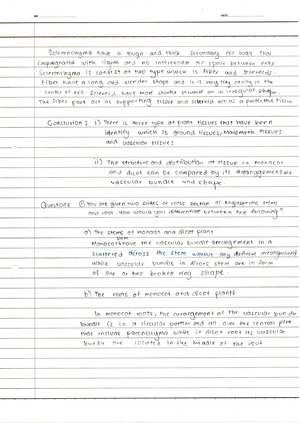 NO: DATE:
Sclerenchyma have a tough and thick secondary cell wall that
impregnated with lignin and no intercellular air space between cells
Sclerenchyma is consist of two type which is fiber and sclereids.
Fiber have a long and slender shape and it is very tiny cavity in the
center of cell. Sclereid have more shorter and or in irregular shape.
The fiber part act as supporting tissue and sclereid act as a protective tissue.
Conclusion: i) There is three type of plant tissues that have been
identify which is ground tissues, tissues
and vascular tissues
ii) The structure and distribution of tissue in monocot
and dicot can be compared by its arrangement of
vascular bundle and shape.
Questions ① You are given two slides of cross section of angiosperms stems
and root. How would you differentiate between the following?
a) The stems of monocot and dicot plant
Monocot have the vascular bundle arrangement in a
scattered across the stem without any definite arrangement
while vascular bundle in dicots stem are in form
of one or two broken ring shape.
b) The roots of monocot and dicot plants.
In monocot roots, the arrangement of the vascular bundle
bundle is in a circular portion and all over the central part
not include parenchyma while in dicot root its vascular
bundle are located in the middle of the root